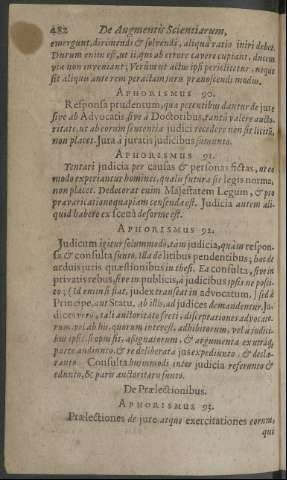 482 De Augmentis Scientiarum,
emergunt, dirimendi & solvendi, aliqua ratio iniri debet.
Durum enim est, ut ii, qui ab errore cavere cupiant, ducem
viæ non inveniant; Verùm ut actus ipsi periclitetur; neque
sit aliquis ante rem peractam juris prænoscendi modus.
APHORISMUS 90.
Responsa prudentum, quæ petentibus dantur de jure
sive ab Advocatis sive à Doctoribus, tantâ valere auctoritate,
ritate, ut ab eorum sententia judici recedere non sit licitũ,
non placet. Jura à juratis judicibus sumunto.
APHORISMUS 91.
Tentari judicia per causas & personas fictas, ut eo
modo experiantur homines, qualis futura sit legis norma,
non placet. Dedecorat enim Majestatem Legum, & pro
prævaricatione quapiam censenda est. Judicia autem aliquid
quid habere ex scenâ deforme est.
APHORISMUS 92.
Judicum igitur solummodo, tam judicia, quàm responsa
sa & consulta sunto. Illa de litibus pendentibus; hæc de
arduis juris quæstionibus in thesi. Ea consulta, sive in
privatis rebus, sive in publicis, à judicibus ipsis ne poscito
to, (id enim si fiat, judex transeat in advocatum,) sed à
Principe, aut Statu. ab illis, ad judices demandentur. Judices
dices verò, tali auctoritate freti, disceptationes advocatorum
rum, vel ab his, quorum interest, adhibitorum, vel à judicibus
bus ipsis, si opus sit, assignatorum, & argumenta ex utraque
parte audiunto; & re deliberatâ jus expediunto, & declaranto.
ranto. Consulta hujusmodi inter judicia referunto &
edunto, & paris auctoritatis sunto.
De Prælectionibus.
APHORISMUS 93.
Prælectiones de jure atque exercitationes eorum,
qui